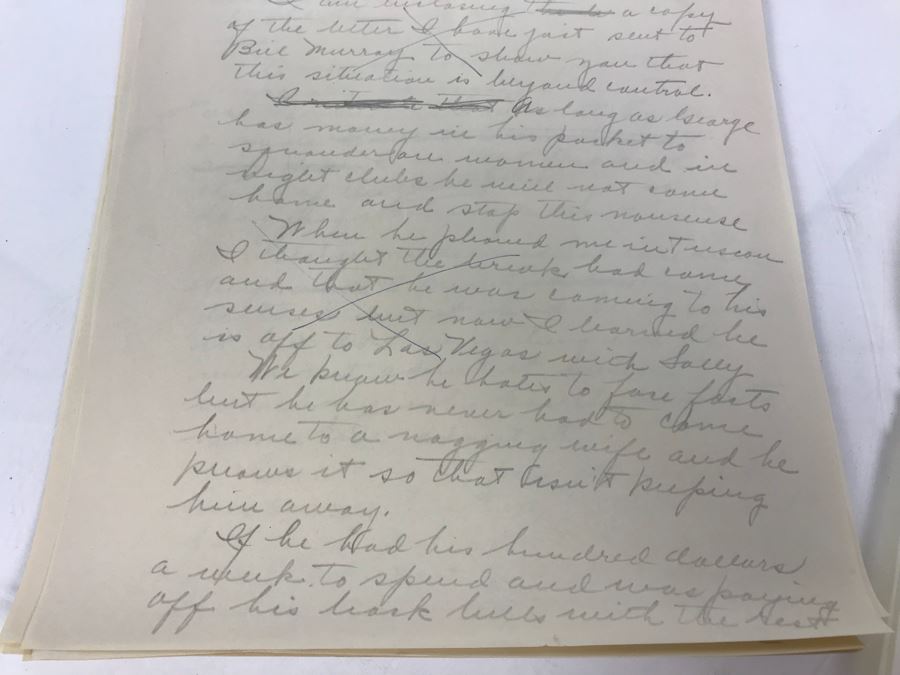 I am enclosing a copy
of the letter I have just sent to
Bill Murray to show you that
this situation is beyond control.
As long as George
has money in his pocket to
squander on women and in
night clubs he will not come
home and stop this nonsense
When he phoned me in Tuscon
I thought the break had come
and that he was coming to his
senses but now I learned he
is off to Las Vegas with Sally
We know he hates to face facts
but he has never had to come
home to a nagging wife and he
knows it so that isn't keeping
him away.
If he had his hundred dollars
a week to spend and was paying
off his back bills with the rest